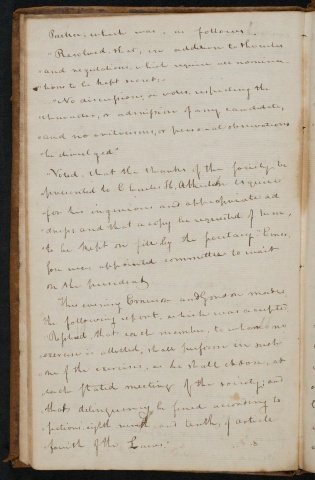 Parker, which was, as follows:
"Resolved that, in addition to the rules
and regulations, which require all nomina-
tions to be kept secret,
"No discussions, or votes, respecting the
character, or admission of any candidate,
and no criticisms, or personal observations
be divulged"
Voted, that the thanks of the society be
presented to Charles H. Atherton Esquire
for his ingenious and appropriate ad
dress; and that a copy be requested of him,
to be kept on file by the secretary.
were appointed committee to wait
on the president
This evening Emerson and Gordon made
the following report, which was accepted
Resolved, that each member, to whom no
exercise is allotted, shall perform in such
one of the exercises, as he shall choose, at
each stated meeting of the society; and
that delinquents be fined according to
sections, eighth ninth and tenth, of article
fourth of the Laws.